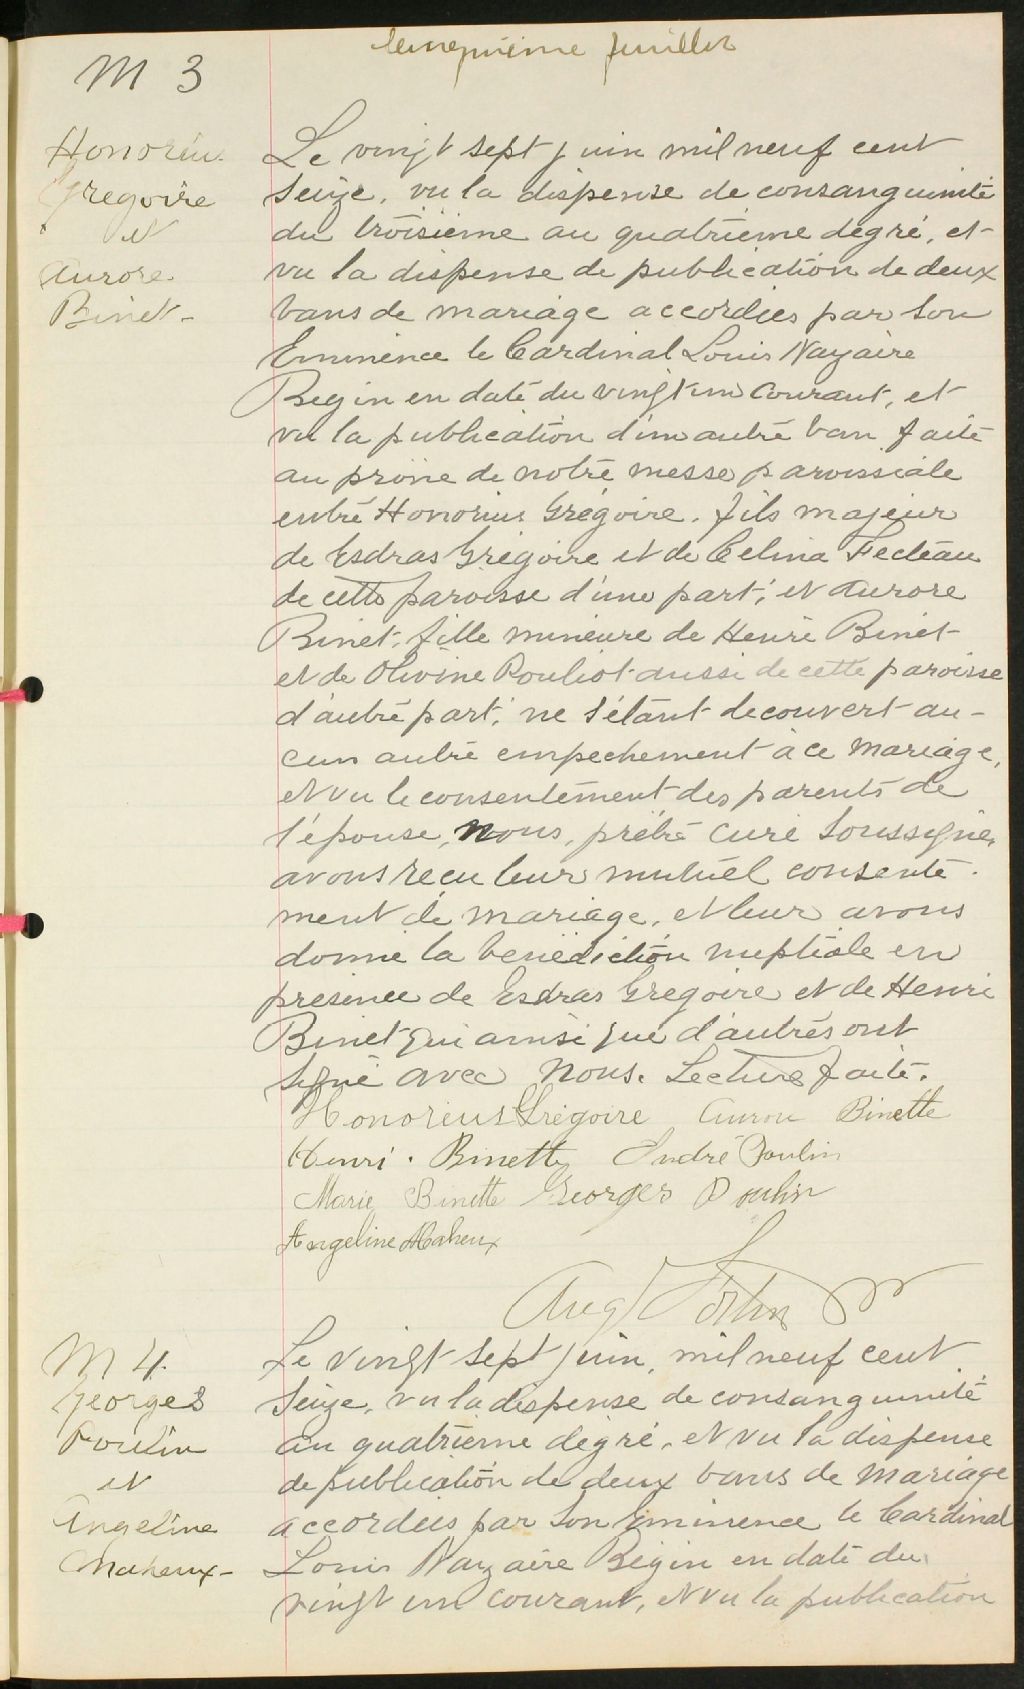 cinquième feuillet
M 3
Honorius
Grégoire
et
Aurore
Binet-
Le vingt sept juin mil neuf cent
seize, vu la dispense de consanguinité
du troisième au quatrième degré, et
vu la dispense de publication de deux
bans de mariage accordées par Son
Eminence le Cardinal Louis Nazaire
Begin en date du vingt un courant, et
vu la publication d'un autre ban faite
au prône de notre messe paroissiale
entre Honorius Grégoire, fils majeur
de Esdras Grégoire et de Celina Fecteau
de cette paroisse d'une part; et Aurore
Binet, fille mineure de Henri Binet
et de Olivine Pouliot aussi de cette paroisse
d'autre part; ne s'étant decouvert au-
cun autre empechement à ce mariage,
et vu le consentement des parents de
l'épouse, nous, prêtre curé soussigné,
avons reçu leur mutuel consente-
ment de mariage, et leur avons
donné la bénédiction nuptiale en
présence de Esdras Gregoire et de Henri
Binet qui ainsi que d'autres ont
signé avec nous. Lecture faite.
Honorius Grégoire Aurore Binette
Henri. Binette André Poulin
Marie Binette Georges Poulin
Angeline Maheux
Aug Fortin
M 4.
Georges
Poulin
et
Angeline
Maheux-
Le vingt sept juin, mil neuf cent
seize, vu la dispense de consanguinité
au quatrième degré, et vu la dispense
de publication de deux bans de mariage
accordées par Son Eminence le Cardinal
Louis Nazaire Bégin en date du
vingt un courant, et vu la publication